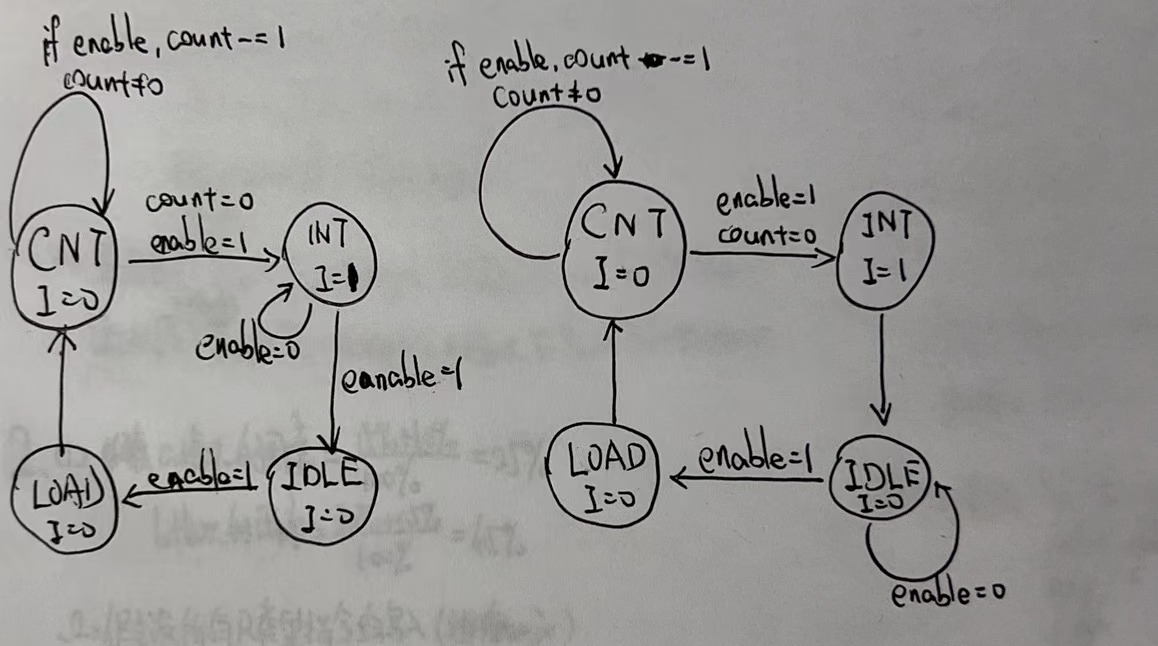 if enable, count -= 1
count≠0
CNT
I=0
count=0
enable=1
INT
I=1
enable=0
eanable=1
LOAD
I=0
enable=1
IDLE
I=0
if enable, count -= 1
count≠0
CNT
I=0
enable=1
count=0
INT
I=1
LOAD
I=0
enable=1
IDLE
I=0
enable=0